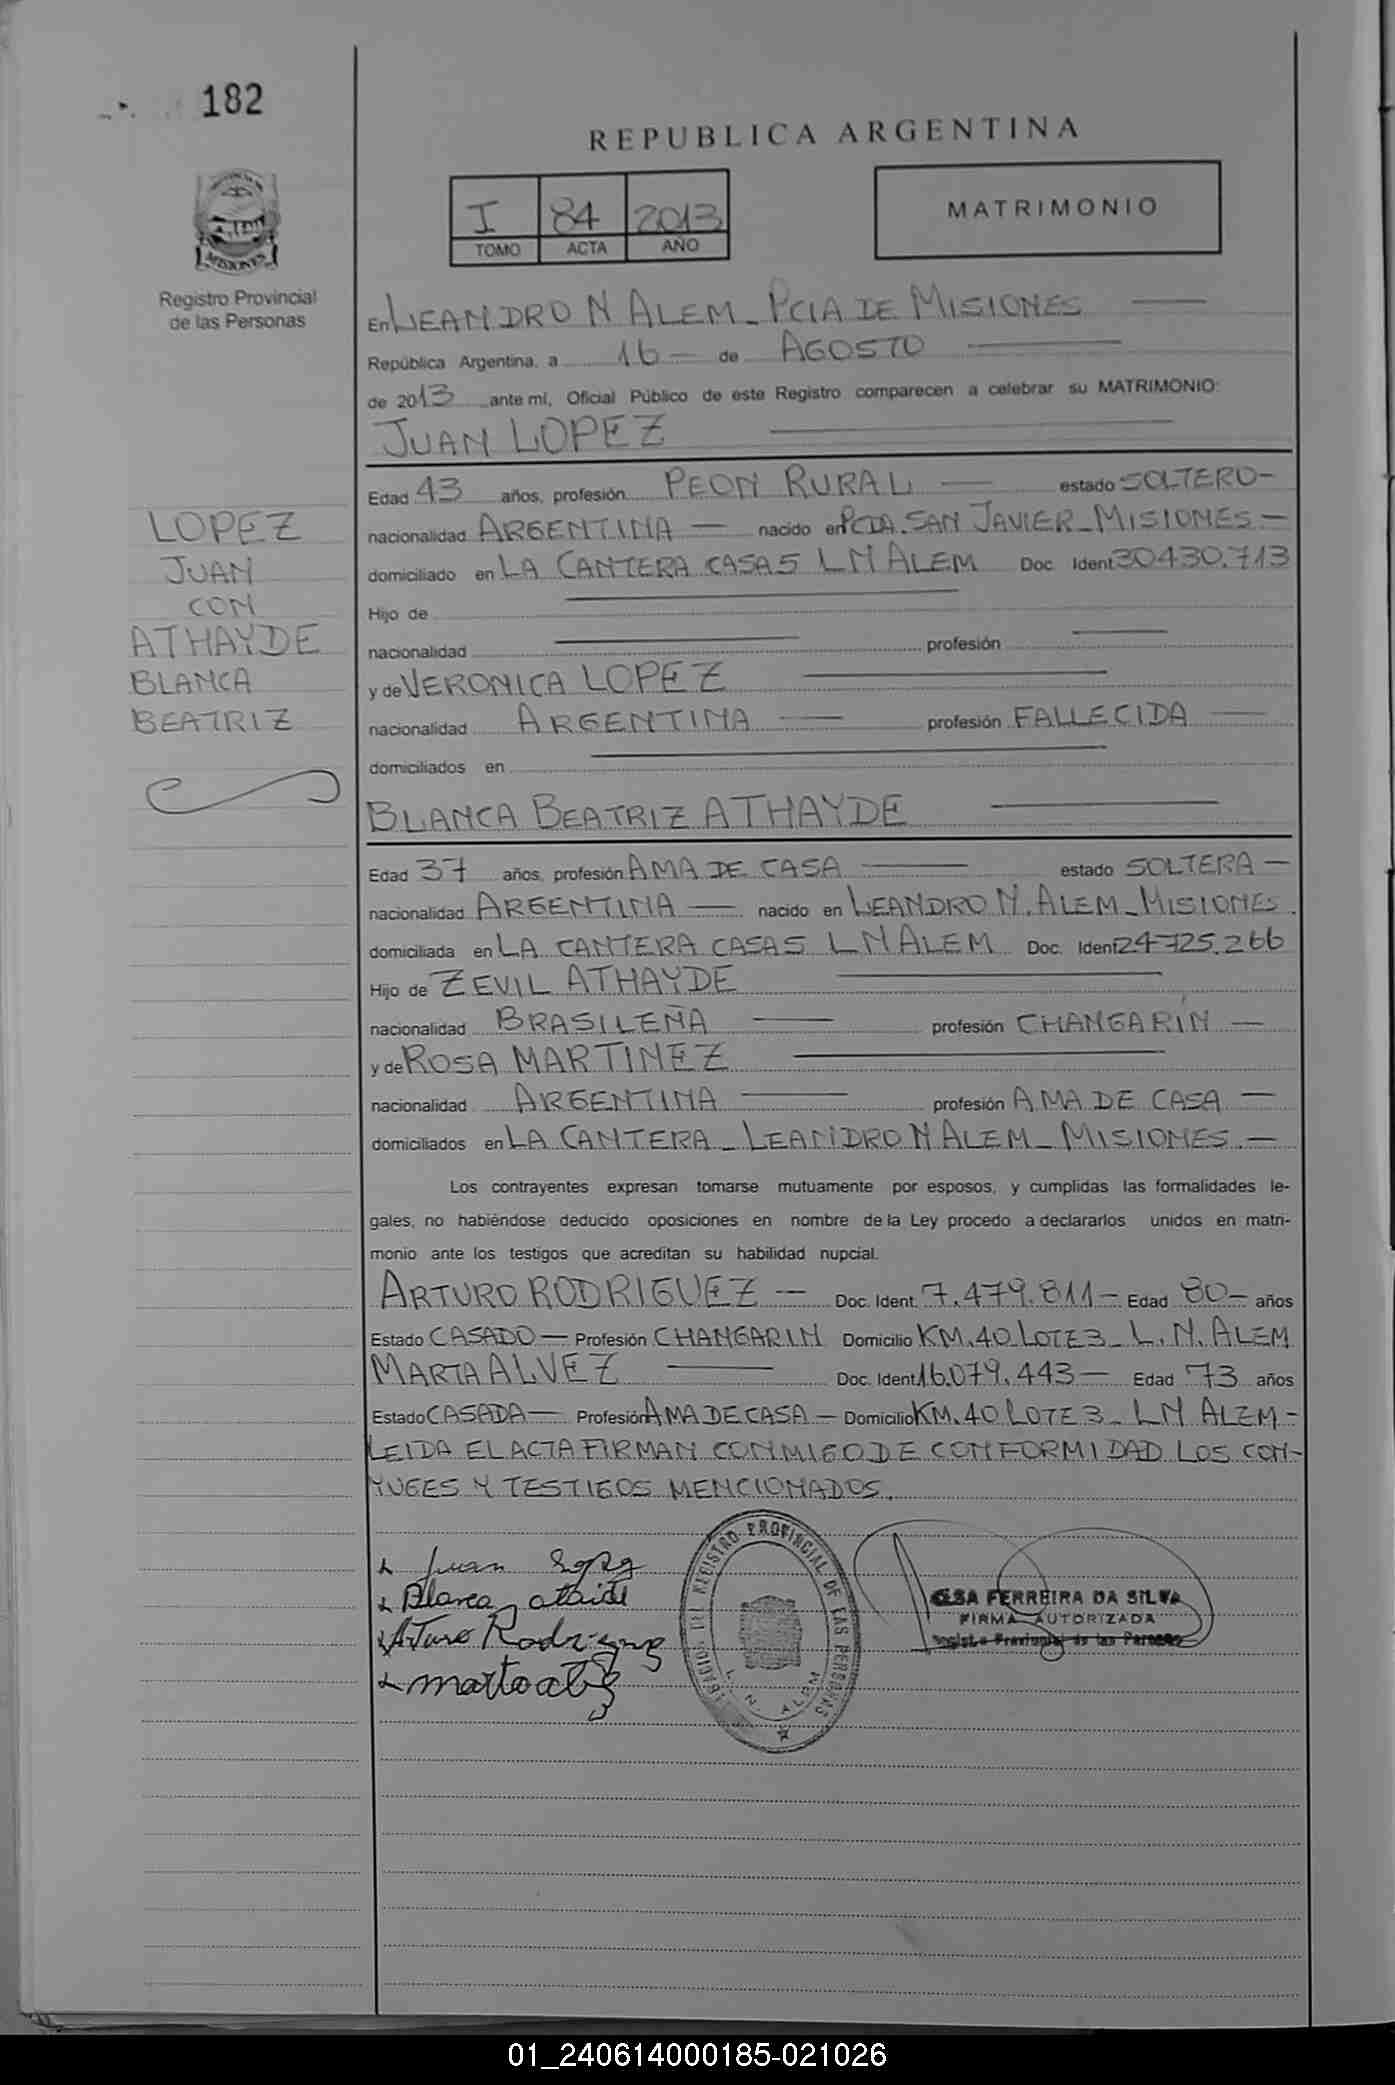 182
REPUBLICA ARGENTINA
I 84 2013
TOMO ACTA AÑO
MATRIMONIO
MISIONES
Registro Provincial
de las Personas
En LEANDRO N ALEM - PCIA DE MISIONES
República Argentina, a 16 de AGOSTO
de 2013 ante mí, Oficial Público de este Registro comparecen a celebrar su MATRIMONIO:
JUAN LOPEZ
Edad 43 años, profesión PEON RURAL estado SOLTERO-
nacionalidad ARGENTINA — nacido en PCDA. SAN JAVIER - MISIONES -
domiciliado en LA CANTERA CASA 5 L N ALEM Doc. Ident 30430.713
Hijo de
nacionalidad profesión
y de VERONICA LOPEZ
nacionalidad ARGENTINA — profesión FALLECIDA —
domiciliados en
LOPEZ
JUAN
CON
ATHAYDE
BLANCA
BEATRIZ
BLANCA BEATRIZ ATHAYDE
Edad 37 años, profesión AMA DE CASA estado SOLTERA -
nacionalidad ARGENTINA — nacido en LEANDRO N. ALEM - MISIONES.
domiciliada en LA CANTERA CASA 5 L N ALEM Doc. Ident 24725.266
Hijo de ZEVIL ATHAYDE
nacionalidad BRASILEÑA — profesión CHANGARIN —
y de ROSA MARTINEZ
nacionalidad ARGENTINA — profesión AMA DE CASA —
domiciliados en LA CANTERA - LEANDRO N ALEM - MISIONES. —
Los contrayentes expresan tomarse mutuamente por esposos, y cumplidas las formalidades le-
gales, no habiéndose deducido oposiciones en nombre de la Ley procedo a declararlos unidos en matri-
monio ante los testigos que acreditan su habilidad nupcial.
ARTURO RODRIGUEZ — Doc. Ident. 7.479.811 - Edad 80 - años
Estado CASADO — Profesión CHANGARIN Domicilio KM. 40 LOTE 3 - L. N. ALEM
MARTA ALVEZ — Doc. Ident 16.079.443 — Edad 73 años
Estado CASADA — Profesión AMA DE CASA — Domicilio KM. 40 LOTE 3 - L N ALEM -
LEIDA EL ACTA FIRMAN CONMIGO DE CONFORMIDAD LOS CON-
YUGES Y TESTIGOS MENCIONADOS.
Juan
Blanca ataide
Arturo Rodriguez
marta
REGISTRO PROVINCIAL DE LAS PERSONAS
L. N. ALEM
ELSA FERREIRA DA SILVA
FIRMA AUTORIZADA
Registro Provincial de las Personas
01_240614000185-021026